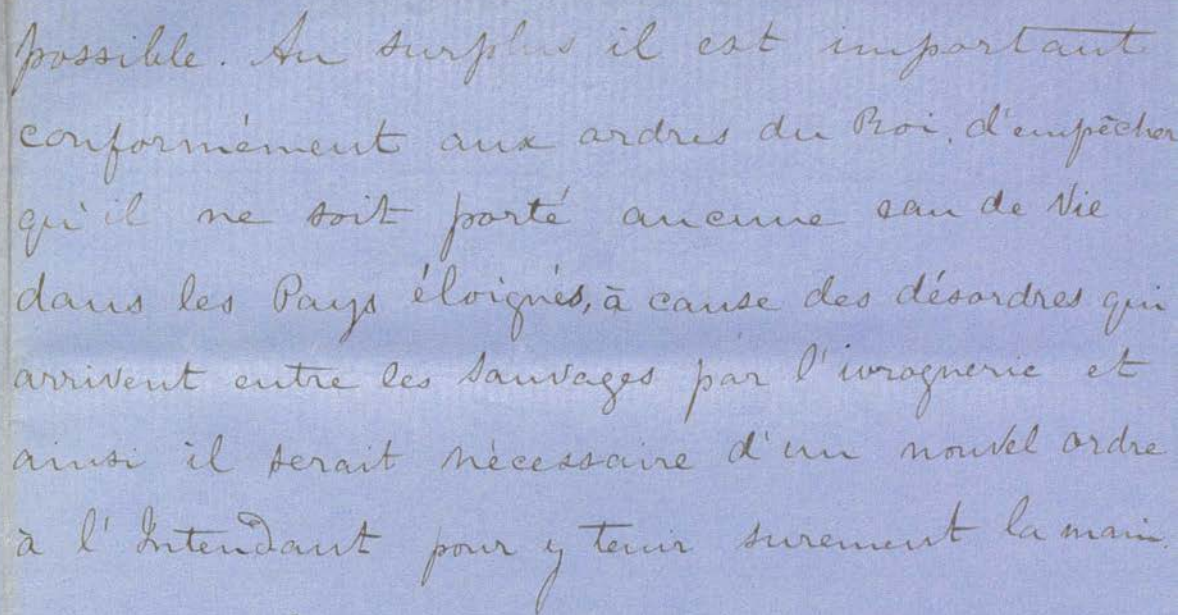 possible. Au surplus il est important
conformément aux ordres du Roi, d'empêcher
qu'il ne soit porté aucune eau de Vie
dans les Pays éloignés, à cause des désordres qui
arrivent entre les Sauvages par l'ivrognerie et
ainsi il serait nécessaire d'un nouvel ordre
à l'Intendant pour y tenir surement la main.